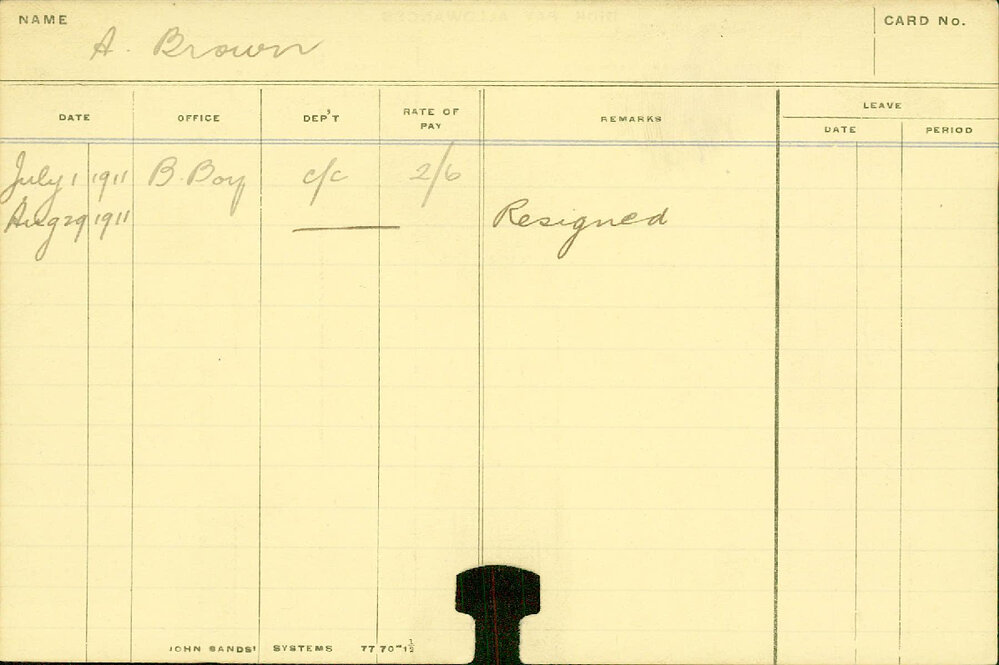 NAME A. Brown CARD No.
DATE OFFICE DEP'T RATE OF PAY REMARKS LEAVE
DATE PERIOD
July 1 1911 B. Boy c/c 2/6
Aug 29 1911 Resigned
JOHN SANDS' SYSTEMS 77 70